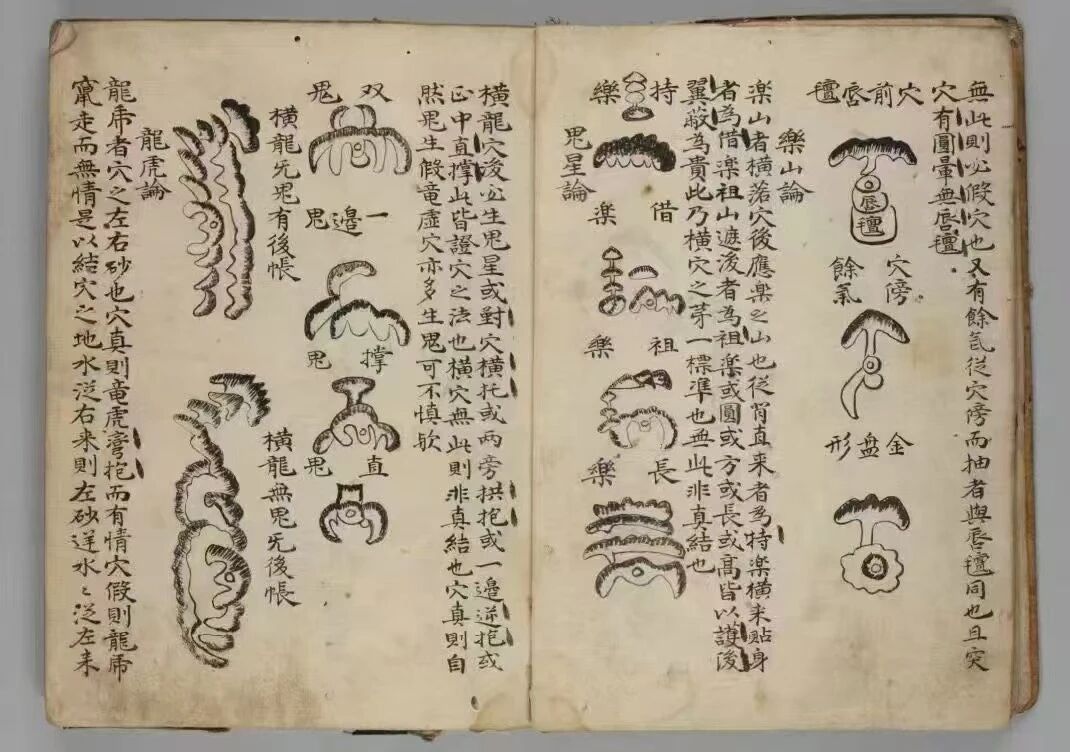 無此則必假穴也又有餘氣從穴傍而抽者與唇氊同也且突
穴有圓暈無唇氊
穴前唇氊
唇氊
穴傍
餘氣
金盘形
樂山論
楽山者橫落穴後應楽之山也従背直来者為特楽橫来贴身
者為借楽祖山遮後者為祖楽或圓或方或長或髙皆以護後
翼蔽為貴此乃橫穴之茅一標準也無此非真結也
持樂
借楽
祖樂
長樂
鬼星論
橫龍穴後必生鬼星或對穴橫托或两旁拱抱或一邉逆抱或
正中直撑此皆證穴之法也橫穴無此則非真結也穴真則自
然鬼生假竜虚穴亦多生鬼可不慎欤
双鬼
一邉鬼
撑鬼
直鬼
橫龍旡鬼有後帳
橫龍無鬼旡後帳
龍虎論
龍虎者穴之左右砂也穴真則竜虎湾抱而有情穴假則龍虎
竄走而無情是以結穴之地水従右来則左砂逆水〻従左来